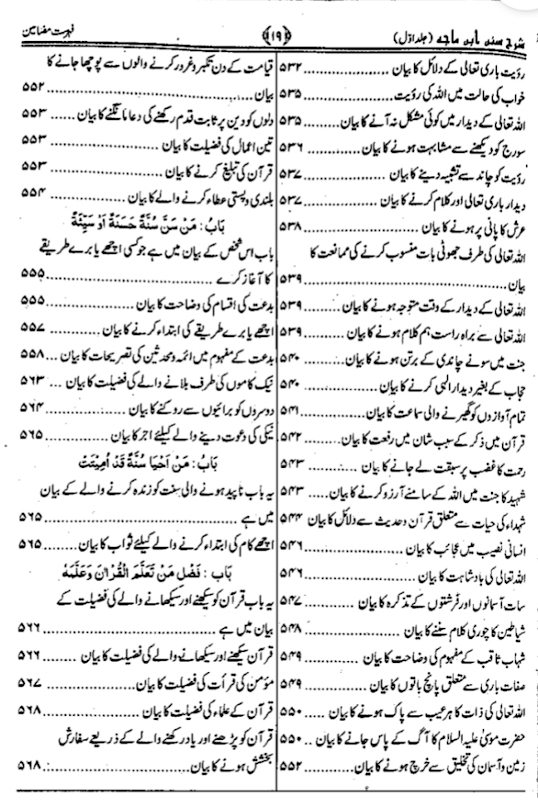 شرح سنن ابن ماجہ (جلد اوّل)
﴿۱۹﴾
فہرست مضامین
رؤیت باری تعالیٰ کے دلائل کا بیان ..... ۵۳۲
خواب کی حالت میں اللہ کی رؤیت ..... ۵۳۵
اللہ تعالیٰ کے دیدار میں کوئی مشکل نہ آنے کا بیان ..... ۵۳۵
سورج کو دیکھنے سے مشابہت ہونے کا بیان ..... ۵۳۶
رؤیت کو چاند سے تشبیہ دینے کا بیان ..... ۵۳۷
دیدار باری تعالیٰ اور کلام کرنے کا بیان ..... ۵۳۷
عرش کا پانی پر ہونے کا بیان ..... ۵۳۸
اللہ تعالیٰ کی طرف جھوٹی بات منسوب کرنے کی ممانعت کا
بیان ..... ۵۳۹
اللہ تعالیٰ کے دیدار کے وقت متوجہ ہونے کا بیان ..... ۵۳۹
اللہ تعالیٰ سے براہ راست ہم کلام ہونے کا بیان ..... ۵۳۹
جنت میں سونے چاندی کے برتن ہونے کا بیان ..... ۵۴۰
حجاب کے بغیر دیدار الٰہی کرنے کا بیان ..... ۵۴۰
تمام آوازوں کو گھیرنے والی سماعت کا بیان ..... ۵۴۱
قرآن میں ذکر کے سبب شان میں رفعت کا بیان ..... ۵۴۲
رحمت کا غضب پر سبقت لے جانے کا بیان ..... ۵۴۳
شہید کا جنت میں اللہ کے سامنے آرزو کرنے کا بیان ..... ۵۴۳
شہداء کی حیات سے متعلق قرآن وحدیث سے دلائل کا بیان ۵۴۴
انسانی نصیب میں عجائب کا بیان ..... ۵۴۶
اللہ تعالیٰ کی بادشاہت کا بیان ..... ۵۴۶
سات آسمانوں اور فرشتوں کے تذکرہ کا بیان ..... ۵۴۷
شیاطین کا چوری کلام سننے کا بیان ..... ۵۴۸
شہاب ثاقب کے مفہوم کی وضاحت کا بیان ..... ۵۴۹
صفات باری سے متعلق پانچ باتوں کا بیان ..... ۵۴۹
اللہ تعالیٰ کی ذات کا ہر عیب سے پاک ہونے کا بیان ..... ۵۵۰
حضرت موسیٰ علیہ السلام کا آگ کے پاس جانے کا بیان .. ۵۵۰
زمین و آسمان کی تخلیق سے خرچ ہونے کا بیان ..... ۵۵۲
قیامت کے دن تکبر و غرور کرنے والوں سے پوچھا جانے کا
بیان ..... ۵۵۲
دلوں کو دین پر ثابت قدم رکھنے کی دعا مانگنے کا بیان ..... ۵۵۳
تین اعمال کی فضیلت کا بیان ..... ۵۵۳
قرآن کی تبلیغ کرنے کا بیان ..... ۵۵۳
بلندی و پستی عطاء کرنے والے کا بیان ..... ۵۵۴
بَابُ: مَنْ سَنَّ سُنَّةً حَسَنَةً اَوْ سَيِّئَةً
باب اس شخص کے بیان میں ہے جو کسی اچھے یا برے طریقے
کا آغاز کرے ..... ۵۵۵
بدعت کی اقسام کی وضاحت کا بیان ..... ۵۵۵
اچھے یا برے طریقے کی ابتداء کرنے کا بیان ..... ۵۵۷
بدعت کے مفہوم میں ائمہ ومحدثین کی تصریحات کا بیان ... ۵۵۸
نیک کاموں کی طرف بلانے والے کی فضیلت کا بیان ... ۵۶۳
دوسروں کو برائیوں سے روکنے کا بیان ..... ۵۶۴
نیکی کی دعوت دینے والے کیلئے اجر کا بیان ..... ۵۶۵
بَابُ: مَنْ اَحْيَا سُنَّةً قَدْ اُمِيْتَتْ
یہ باب ناپید ہونے والی سنت کو زندہ کرنے والے کے بیان
میں ہے ..... ۵۶۵
اچھے کام کی ابتداء کرنے والے کیلئے ثواب کا بیان ..... ۵۶۵
بَابُ: فَضْلِ مَنْ تَعَلَّمَ الْقُرْاٰنَ وَعَلَّمَهُ
یہ باب قرآن کو سیکھنے اور سیکھانے والے کی فضیلت کے
بیان میں ہے ..... ۵۶۶
قرآن سیکھنے اور سیکھانے والے کی فضیلت کا بیان ..... ۵۶۶
مؤمن کی قرأت کی فضیلت کا بیان ..... ۵۶۷
قرآن کے علماء کی فضیلت کا بیان ..... ۵۶۸
قرآن کو پڑھنے اور یاد رکھنے والے کے ذریعے سفارش
بخشش ہونے کا بیان ..... ۵۶۸